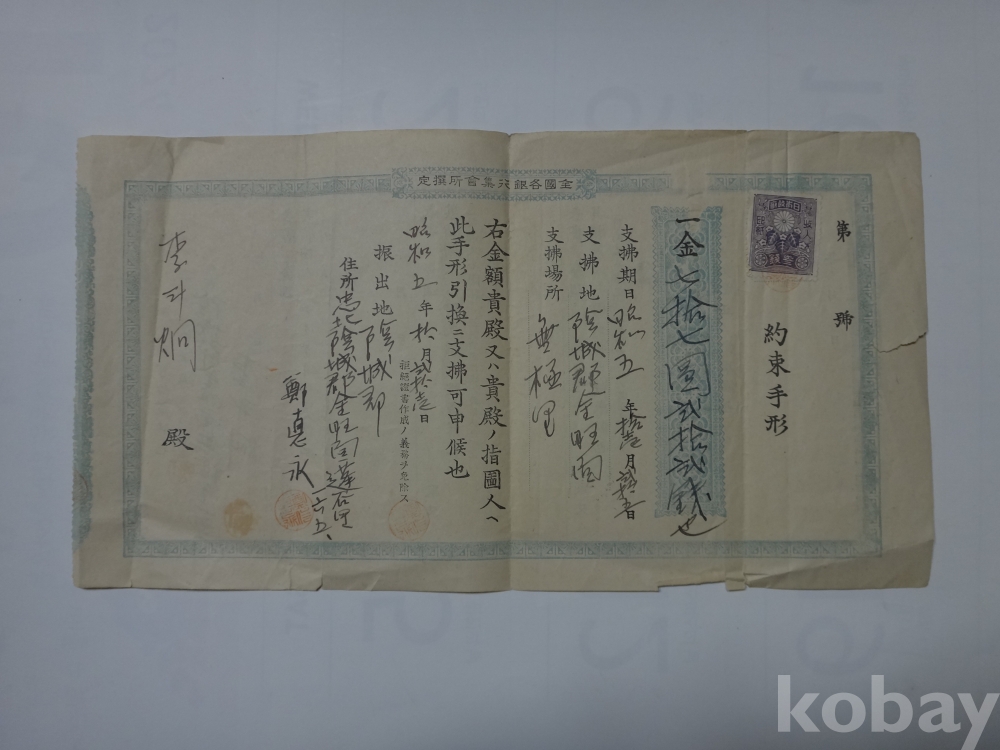 全國各銀行集會所撰定
第 號
約束手形
一金七拾七圓貳拾貳錢也
支拂期日昭和五年拾壹月
支拂地陰城郡金旺面
支拂場所 無極里
右金額貴殿又ハ貴殿ノ指圖人ヘ
此手形引換ニ支拂可申候也
昭和五年拾月貳拾壹日
拒絕證書作成ノ義務ヲ免除ス
振出地陰城郡
住所忠北陰城郡金旺面
鄭悳永
李斗炯 殿
kobay